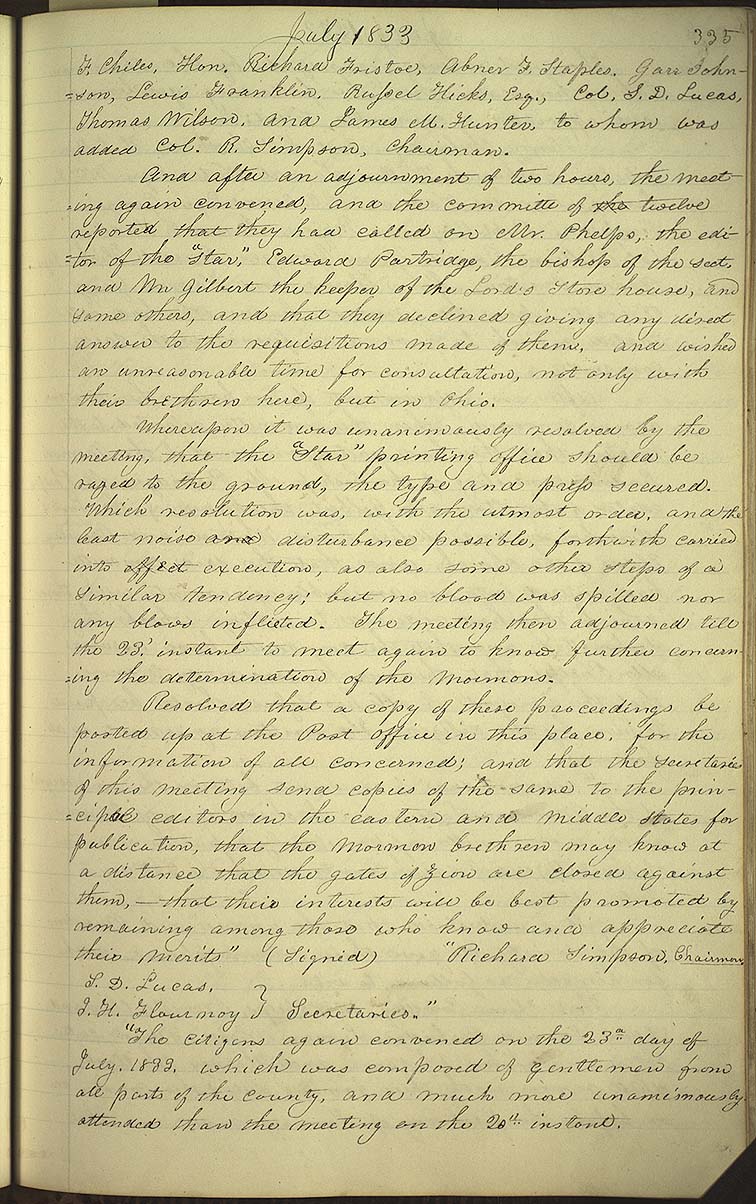 July 1833
335
F. Chiles, Hon. Richard Fristoe, Abner F. Staples. Garr John-
=son, Lewis Franklin. Russel Hicks, Esq., Col. S. D. Lucas,
Thomas Wilson, and James M. Hunter, to whom was
added Col. R. Simpson, Chairman.
And after an adjournment of two hours, the meet-
=ing again convened, and the committe of the twelve
reported that they had called on Mr. Phelps, the edi-
=tor of the "Star," Edward Partridge, the bishop of the sect,
and Mr Gilbert the keeper of the Lord's Store house, and
some others, and that they declined giving any direct
answer to the requisitions made of them, and wished
an unreasonable time for consultation, not only with
their brethren here, but in Ohio.
Whereupon it was unanimously resolved by the
meeting, that the "Star" printing office should be
razed to the ground, the type and press secured.
Which resolution was, with the utmost order, and the
least noise and disturbance possible, forthwith carried
into effect execution, as also some other steps of a
similar tendency; but no blood was spilled nor
any blows inflicted. The meeting then adjourned till
the 23' instant to meet again to know further concern-
=ing the determination of the Mormons.
Resolved that a copy of these proceedings be
posted up at the Post office in this place, for the
information of all concerned; and that the secretaries
of this meeting send copies of the same to the prin-
=ciple editors in the eastern and middle states for
publication, that the Mormon brethren may know at
a distance that the gates of Zion are closed against
them,—that their interests will be best promoted by
remaining among those who know and appreciate
their merits" (Signed) "Richard Simpson, Chairman
S. D. Lucas,
J. H. Flournoy } Secretaries."
"The citizens again convened on the 23d day of
July. 1833, which was composed of gentlemen from
all parts of the county, and much more unanimously
attended than the meeting on the 20th instant.